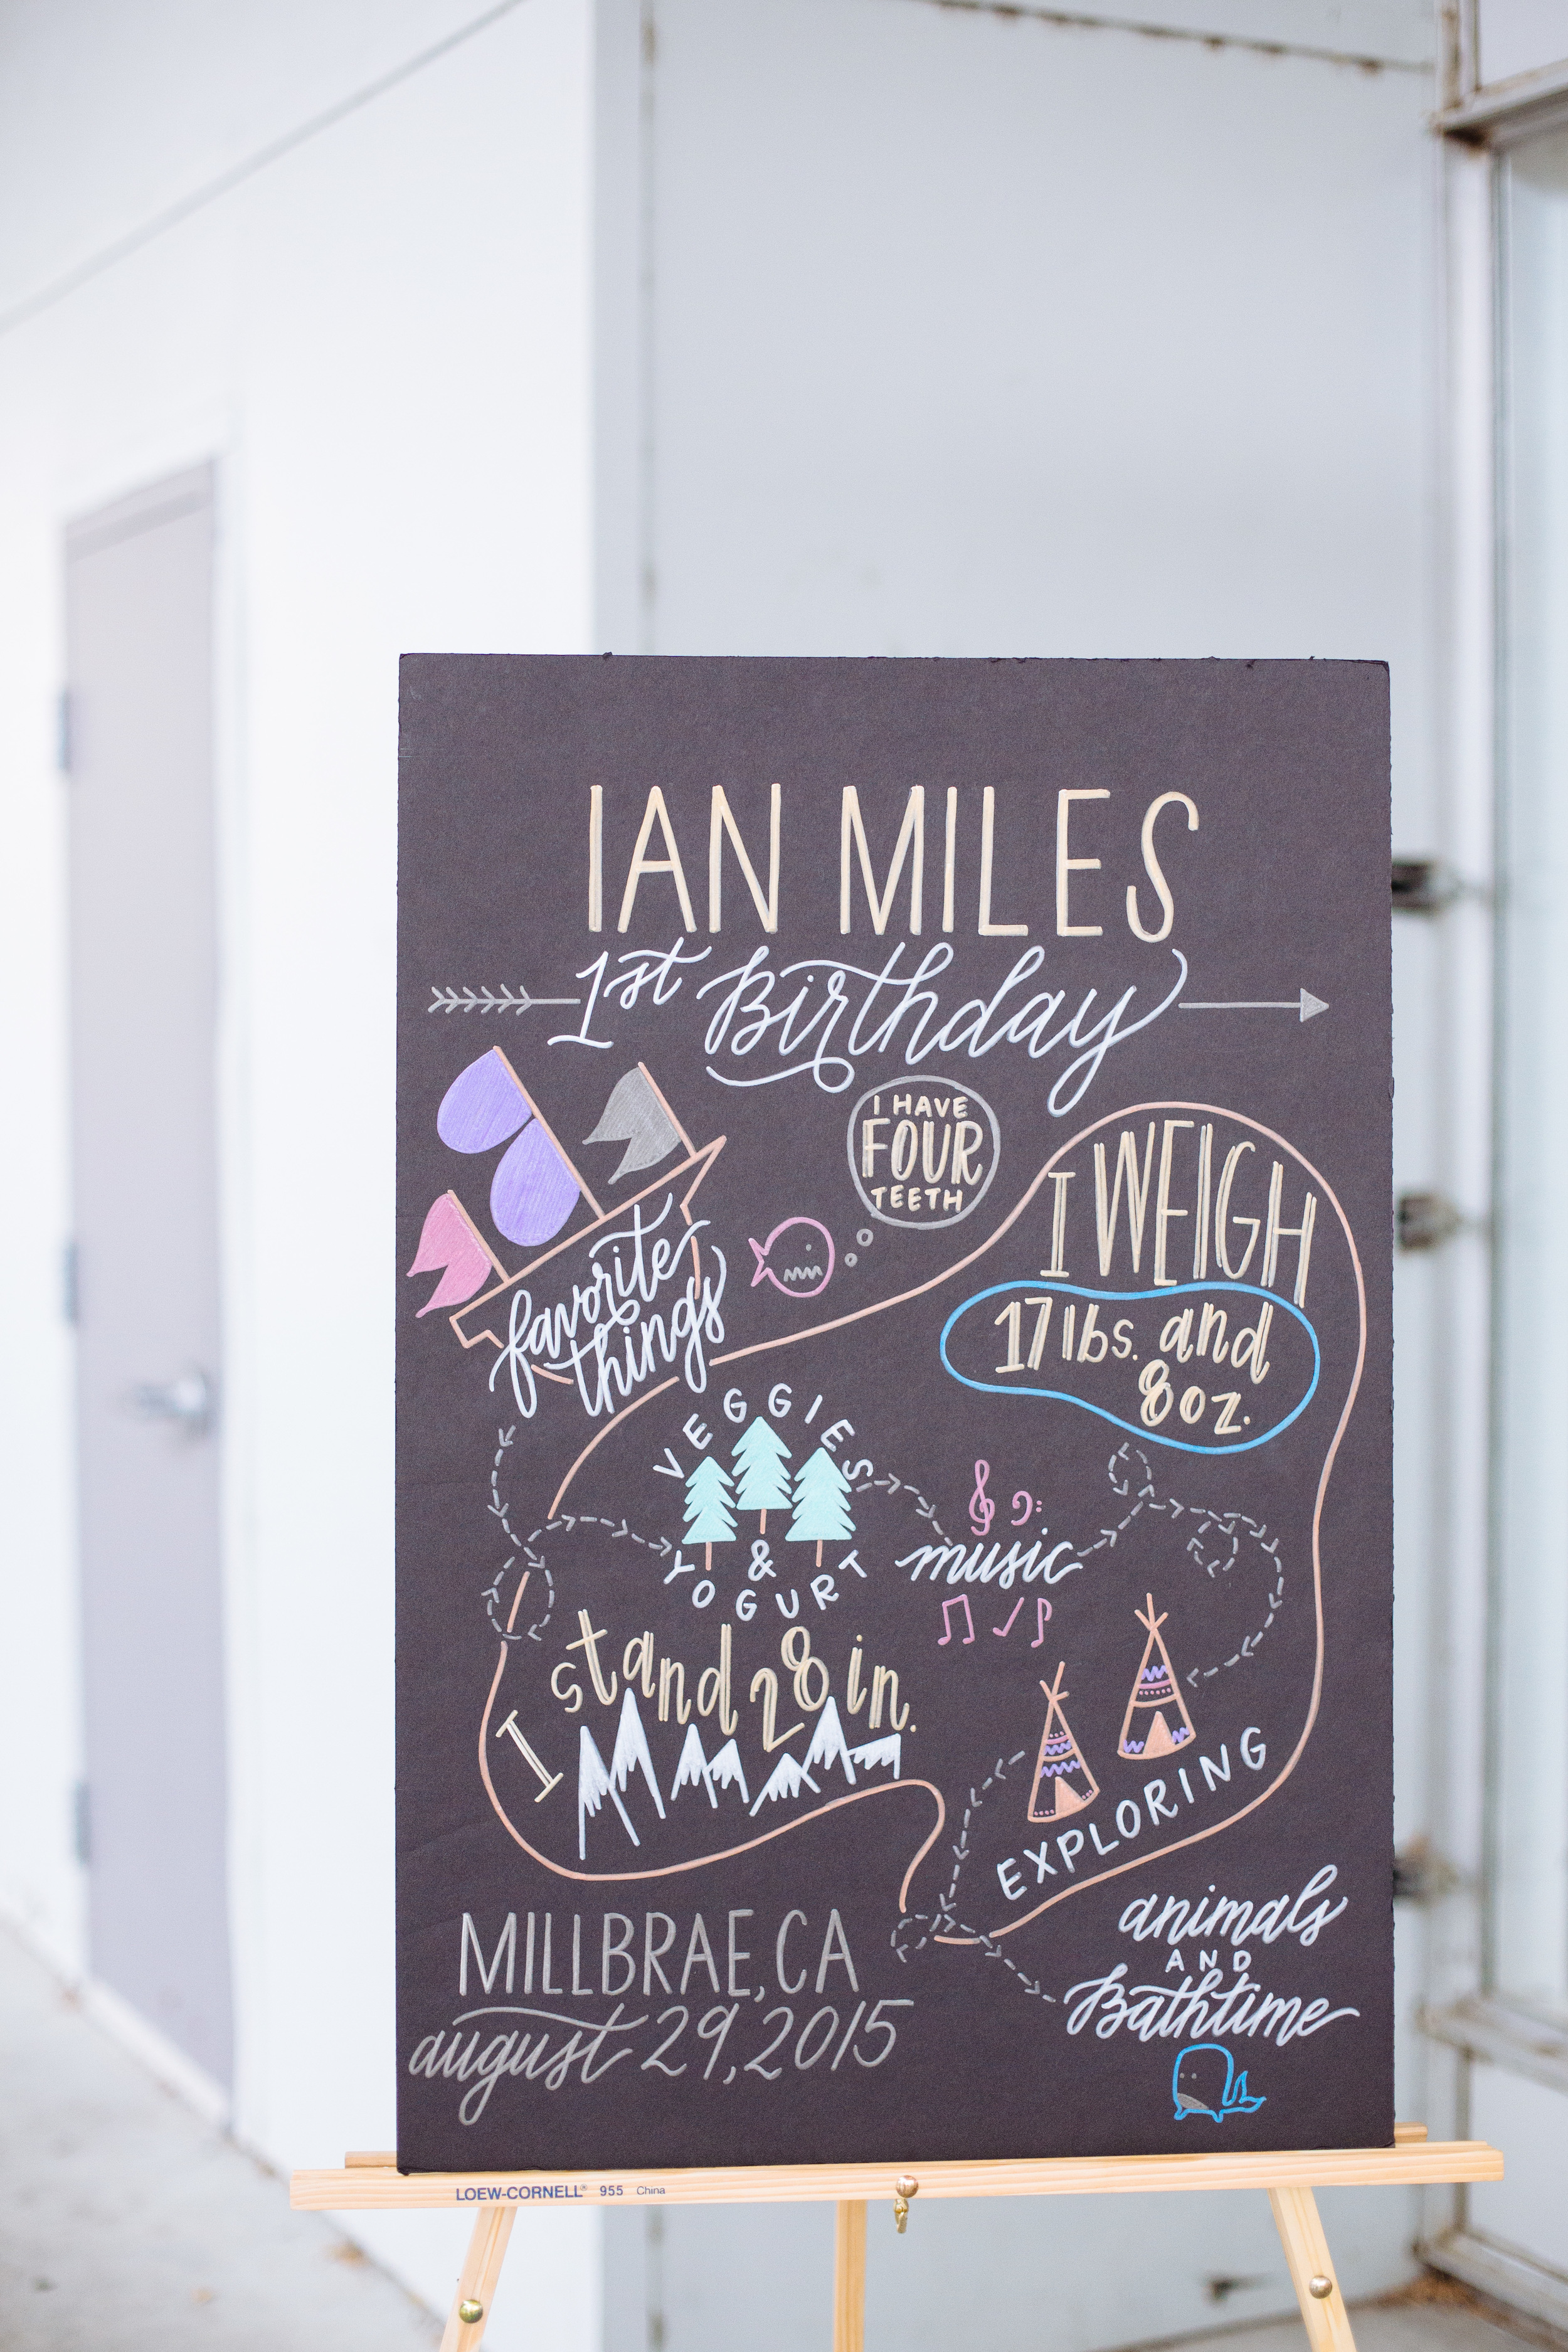 IAN MILES
1st Birthday
I HAVE
FOUR
TEETH
I WEIGH
17 lbs. and
8 oz.
favorite
things
VEGGIES
&
YOGURT
music
I stand 28 in.
EXPLORING
animals
AND
Bathtime
MILLBRAE, CA
august 29, 2015
LOEW-CORNELL® 955 China